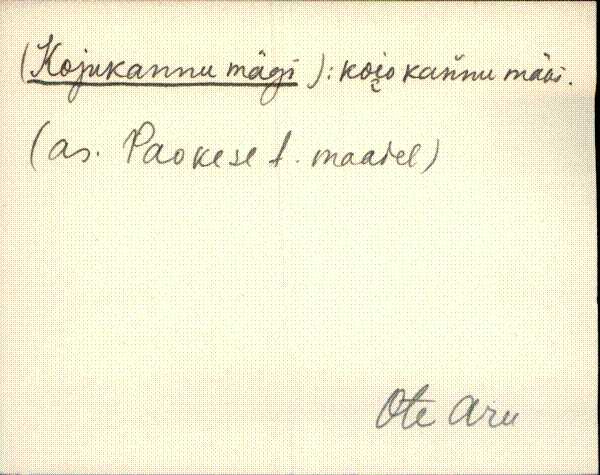 (Kojukannu mägi): koi̯o kanňu mäoi.
(as. Paokese t. maadel)
Ote Aru